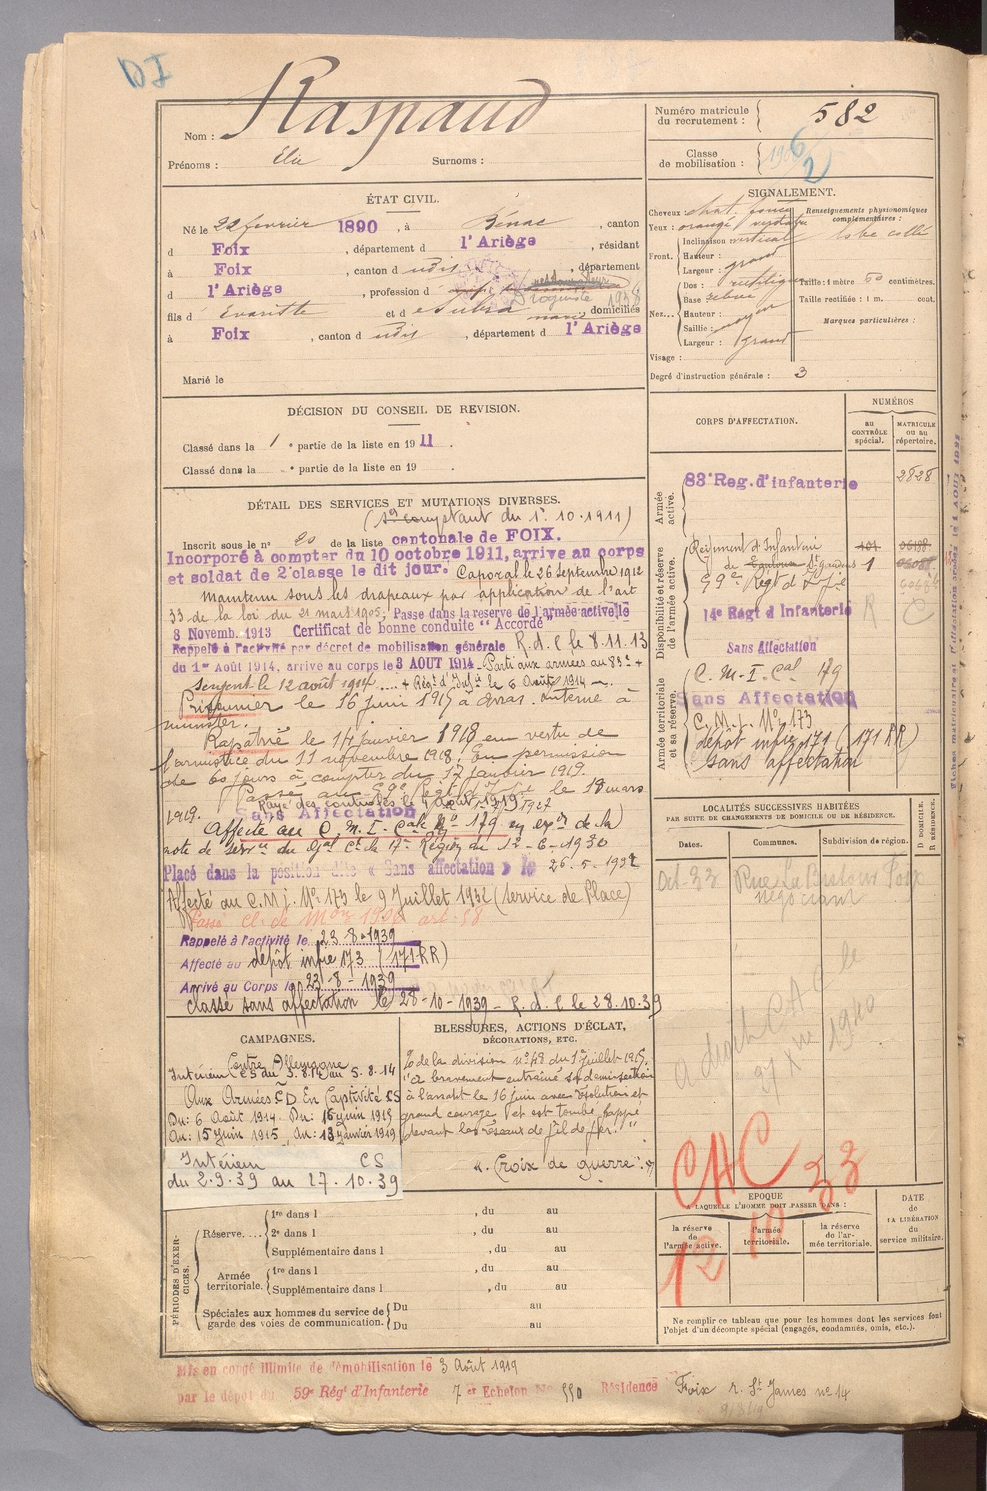 DI
Nom : Raspaud
Prénoms : Elie Surnoms :
Numéro matricule du recrutement : 582
Classe de mobilisation :
6/2
ÉTAT CIVIL.
Né le 22 fevrier 1890, à Bénac, canton
d Foix, département d l'Ariège, résidant
à Foix, canton d udit, département
d l'Ariège, profession d
Droguiste 1938
fils d Evariste et d e Subra domiciliés
à Foix, canton d udit, département d l'Ariège
Marié le
SIGNALEMENT.
Cheveux chat. foncé
Yeux : orangé verdatre
Renseignements physionomiques complémentaires :
lobe collé
Front. Inclinaison vertical
Hauteur :
Largeur : grand
Nez... Dos : rectiligne
Base relevé
Hauteur :
Saillie : moyen
Largeur : grand
Taille : 1 mètre 50 centimètres.
Taille rectifiée : 1 m. cent.
Marques particulières :
Visage :
Degré d'instruction générale : 3
DÉCISION DU CONSEIL DE REVISION.
Classé dans la 1e partie de la liste en 1911.
Classé dans la e partie de la liste en 19 .
CORPS D'AFFECTATION.
NUMÉROS
au CONTRÔLE spécial.
MATRICULE ou au répertoire.
Armée active.
83e Reg. d'infanterie 2828
Disponibilité et réserve de l'armée active.
Régiment d'Infanterie 101
de St Gaudens 1
59e Régt d'Infie
14e Régt d'Infanterie R C
Sans Affectation
Armée territoriale et sa réserve.
C. M. I. Cal 179
Sans Affectation
C. M. j. No 173
dépôt infie 171 (171 RR)
sans affectation
DÉTAIL DES SERVICES ET MUTATIONS DIVERSES.
(Sce comptant du 1er. 10. 1911)
Inscrit sous le n° 20 de la liste cantonale de FOIX.
Incorporé à compter du 10 octobre 1911, arrivé au corps
et soldat de 2e classe le dit jour. Caporal le 26 Septembre 1912
Maintenu sous les drapeaux par application de l'art
33 de la loi du 21 mars 1905, Passé dans la réserve de l'armée active le
8 Novemb. 1913 Certificat de bonne conduite "Accordé"
Rappelé à l'activité par décret de mobilisation générale R. d. C le 8.11.13
du 1er Août 1914, arrivé au corps le 3 AOUT 1914 Parti aux armées au 83e +
Sergent le 12 août 1914 + Régt d'Infie le 6 Août 1914
Prisonnier le 16 juin 1915 à Arras. Interné à
munster.
Rapatrié le 14 janvier 1918 en vertu de
l'armistice du 11 novembre 1918. En permission
de 60 jours à compter du 17 janvier 1919.
Passé au 59e Régt d'Infie le 18 mars
1919.
Sans Affectation
Affecté au C. M. I. Cale No 179 en exon de la
note de service du Gal Ct la 17e Région du 12-6-1930
Placé dans la position dite « Sans affectation » le 26.5.1932
Affecté au C. M. j. No 173 le 9 Juillet 1932 (service de Place)
Passé cl. de Mon 1906 art. 58
Rappelé à l'activité le 23-8-1939
Affecté au dépôt infie 173 (171 RR)
Arrivé au Corps le 23-8-1939
classé sans affectation le 28-10-1939 R. d. C le 28.10.39
LOCALITÉS SUCCESSIVES HABITÉES
PAR SUITE DE CHANGEMENTS DE DOMICILE OU DE RÉSIDENCE.
Dates. Communes. Subdivision de région.
D DOMICILE. R RÉSIDENCE.
Oct-33 Foix
négociant
CAMPAGNES.
Contre Allemagne
Intérieur CS du 3.8.14 au 5.8.14
Aux Armées CD En Captivité CS
Du : 6 Août 1914. Du : 16 juin 1915
Au : 15 Juin 1915, Au : 13 Janvier 1919
Intérieur CS
du 2.9.39 au 27.10.39
BLESSURES, ACTIONS D'ÉCLAT,
DÉCORATIONS, ETC.
O de la division no 48 du 1er juillet 1915.
"a bravement entraîné sa demi section
à l'assaut le 16 juin avec résolution et
grand courage et est tombé frappé
devant les réseaux de fil de fer."
«. Croix de guerre. »
CAC
33
10
12
EPOQUE
A LAQUELLE L'HOMME DOIT PASSER DANS :
la réserve de l'armée active.
l'armée territoriale.
la réserve de l'armée territoriale.
DATE de LA LIBÉRATION du service militaire.
PÉRIODES D'EXERCICES.
Réserve.... 1re dans l , du au
2e dans l , du au
Supplémentaire dans l , du au
Armée territoriale. 1re dans l , du au
Supplémentaire dans l , du au
Spéciales aux hommes du service de garde des voies de communication. Du au
Du au
Ne remplir ce tableau que pour les hommes dont les services font
l'objet d'un décompte spécial (engagés, condamnés, omis, etc.).
Mis en congé illimité de démobilisation le 3 Août 1919
par le dépôt du 59e Régt d'Infanterie 7 er Echelon No 550 Résidence Foix r. St James no 14